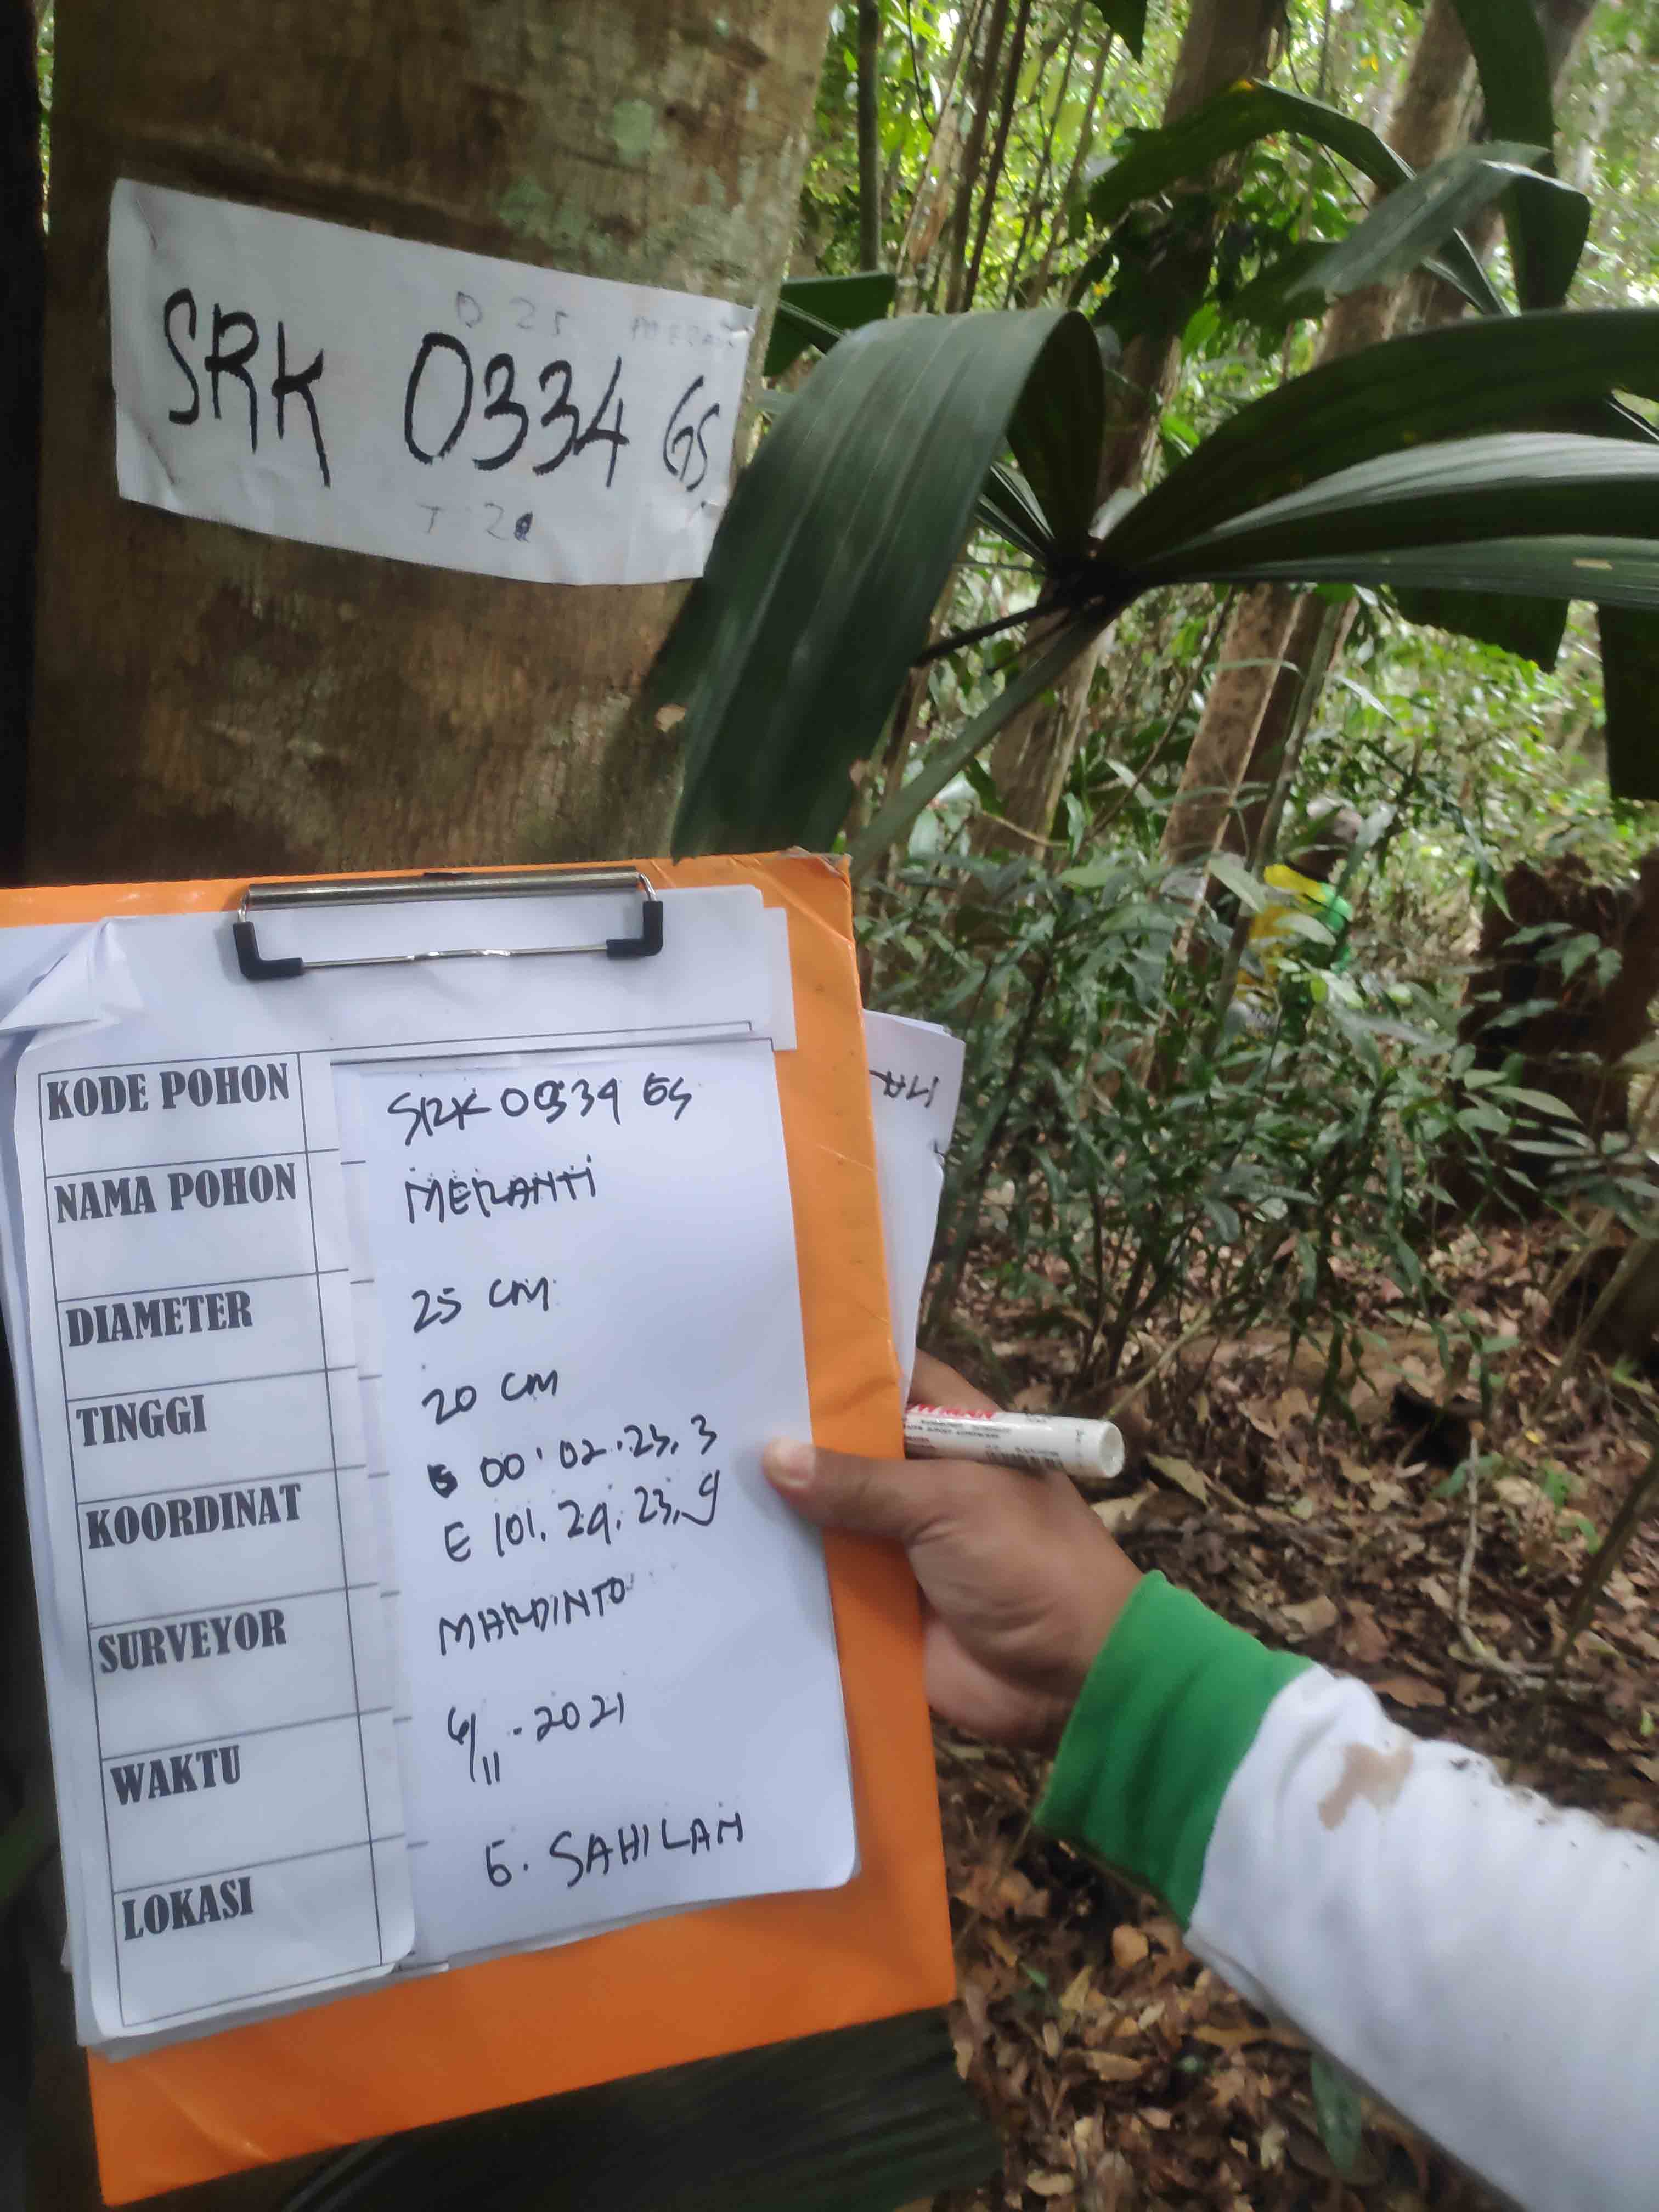 D 25 MERAN
SRK 0334 GS
T 20
KODE POHON SRK 0334 GS
NAMA POHON MERANTI
DIAMETER 25 CM
TINGGI 20 CM
KOORDINAT S 00. 02. 23. 3
E 101. 29. 23. 9
SURVEYOR MARDINTO
WAKTU 6/11 - 2021
LOKASI G. SAHILAN